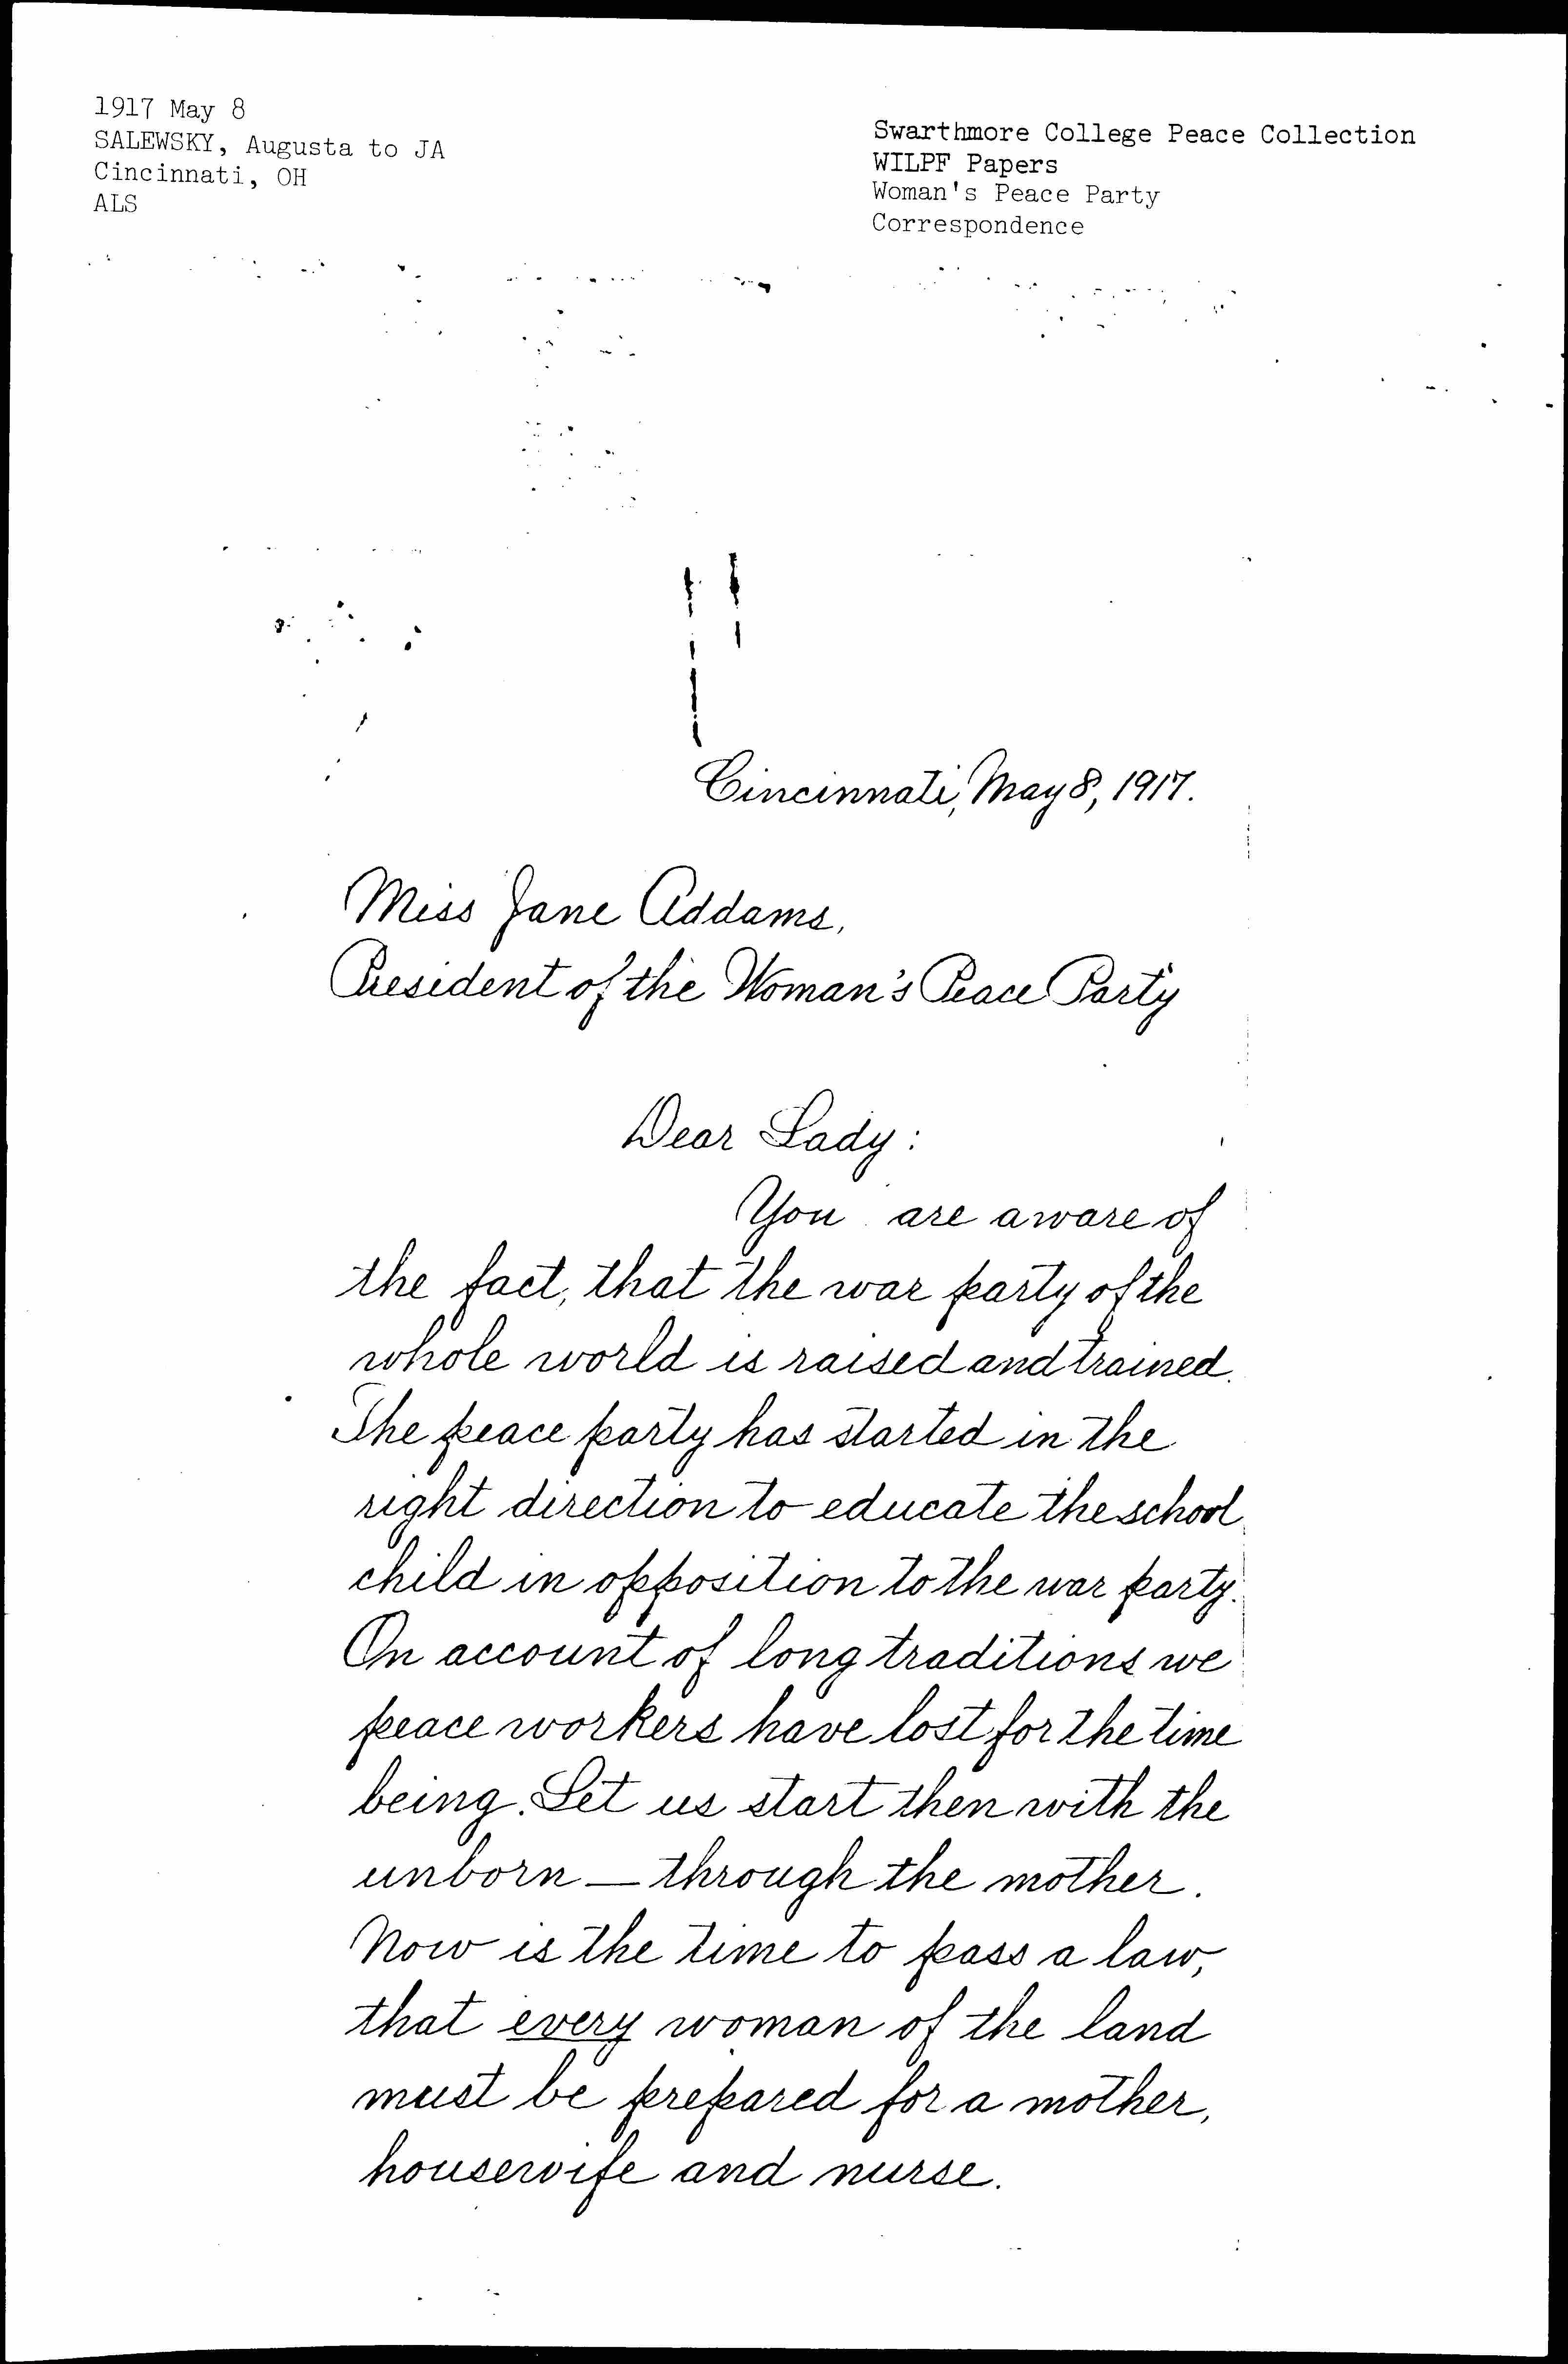 1917 May 8
SALEWSKY, Augusta to JA
Cincinnati, OH
ALS
Swarthmore College Peace Collection
WILPF Papers
Woman's Peace Party
Correspondence
Cincinnati, May 8, 1917.
Miss Jane Addams,
President of the Woman's Peace Party
Dear Lady:
You are aware of
the fact, that the war party of the
whole world is raised and trained.
The peace party has started in the
right direction to educate the school
child in opposition to the war party.
On account of long traditions we
peace workers have lost for the time
being. Let us start then with the
unborn — through the mother.
Now is the time to pass a law,
that every woman of the land
must be prepared for a mother,
housewife and nurse.